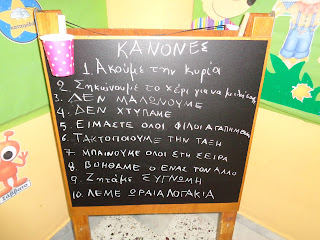 ΚΑΝΟΝΕΣ
1. Ακούμε την κυρία
2. Σηκώνουμε το χέρι για να μιλήσουμε
3. ΔΕΝ ΜΑΛΩΝΟΥΜΕ
4. ΔΕΝ ΧΤΥΠΑΜΕ
5. ΕΙΜΑΣΤΕ ΟΛΟΙ ΦΙΛΟΙ ΑΓΑΠΗΜΕΝΟΙ
6. ΤΑΚΤΟΠΟΙΟΥΜΕ ΤΗΝ ΤΑΞΗ
7. ΜΠΑΙΝΟΥΜΕ ΟΛΟΙ ΣΤΗ ΣΕΙΡΑ
8. ΒΟΗΘΑΜΕ Ο ΕΝΑΣ ΤΟΝ ΑΛΛΟ
9. Ζητάμε ΣΥΓΝΩΜΗ
10. ΛΕΜΕ ΩΡΑΙΑ ΛΟΓΑΚΙΑ
Σάββατο